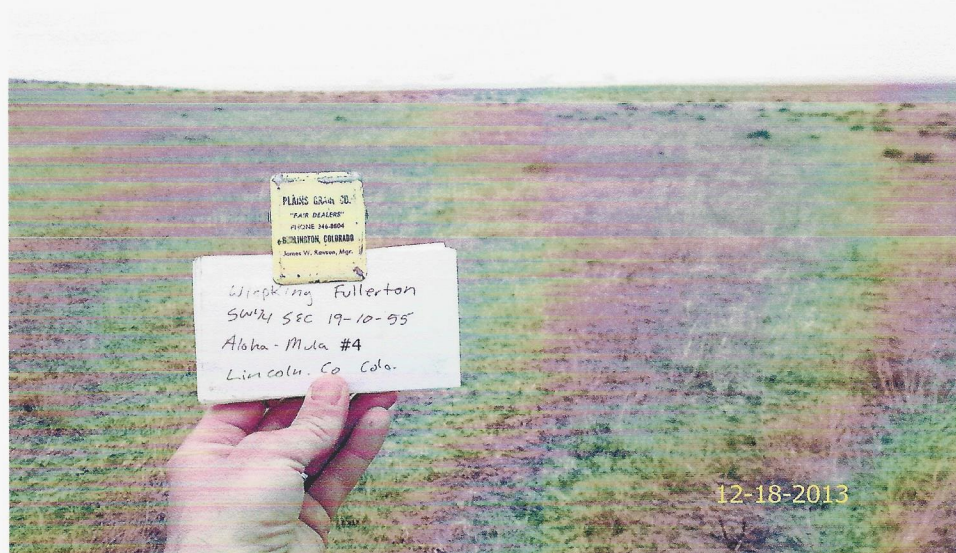 PLAINS GRAIN CO.
"FAIR DEALERS"
PHONE 346-8804
BURLINGTON, COLORADO
James W. Rawson, Mgr.
Wiepking Fullerton
SW1/4 SEC 19-10-55
Aloha-Mula #4
Lincoln. Co Colo.
12-18-2013